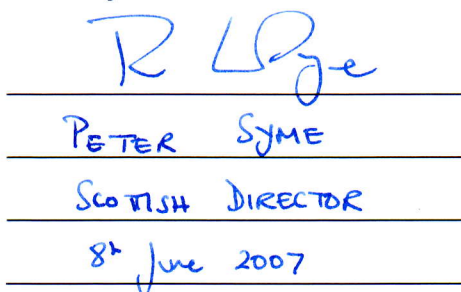 PETER SYME
SCOTTISH DIRECTOR
8th June 2007